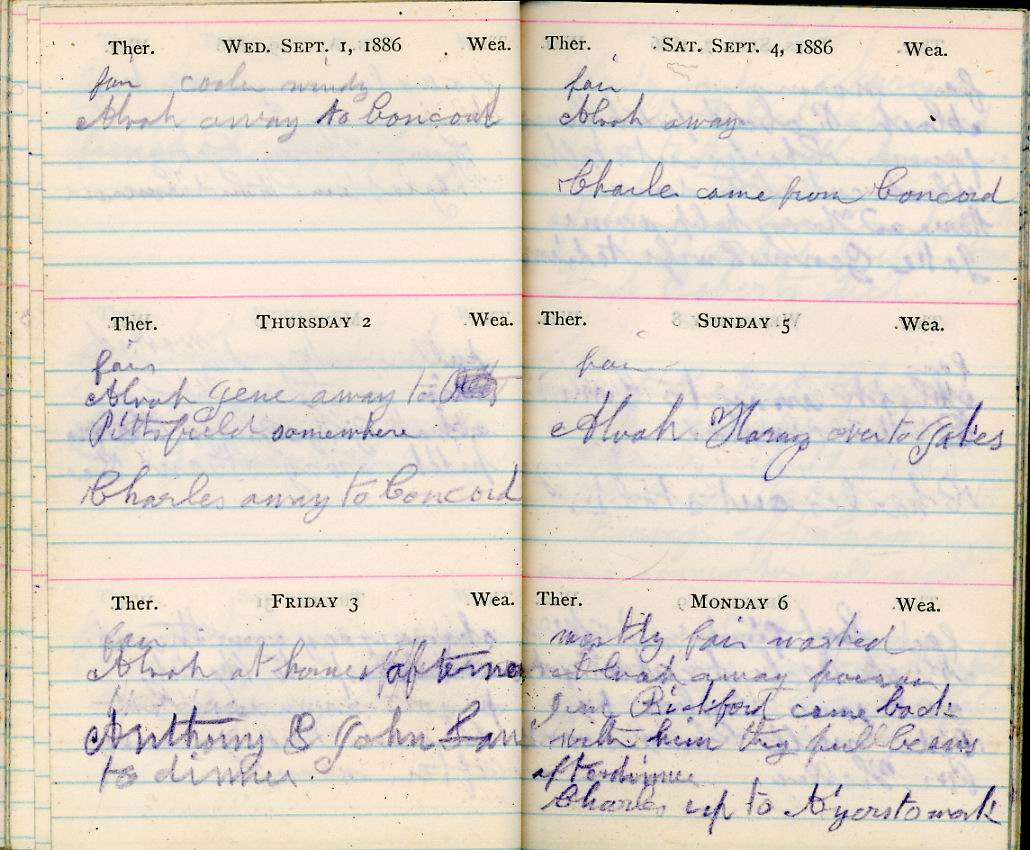 Ther. WED. SEPT. 1, 1886 Wea.
fair cooler windy
Alvah away to Concord
Ther. THURSDAY 2 Wea.
fair
Alvah Gene away to
Pittsfield somewhere
Charles away to Concord
Ther. FRIDAY 3 Wea.
fair
Alvah at home afternoo
Anthony & John
to dinner
Ther. SAT. SEPT. 4, 1886 Wea.
fair
Alvah away
Charles came from Concord
Ther. SUNDAY 5 Wea.
fair
Alvah Harry over to Jakes
Ther. MONDAY 6 Wea.
mostly fair washed
Alvah away
Rickford came back
with him they pull beans
after dinner
Charles up to Ayers to work